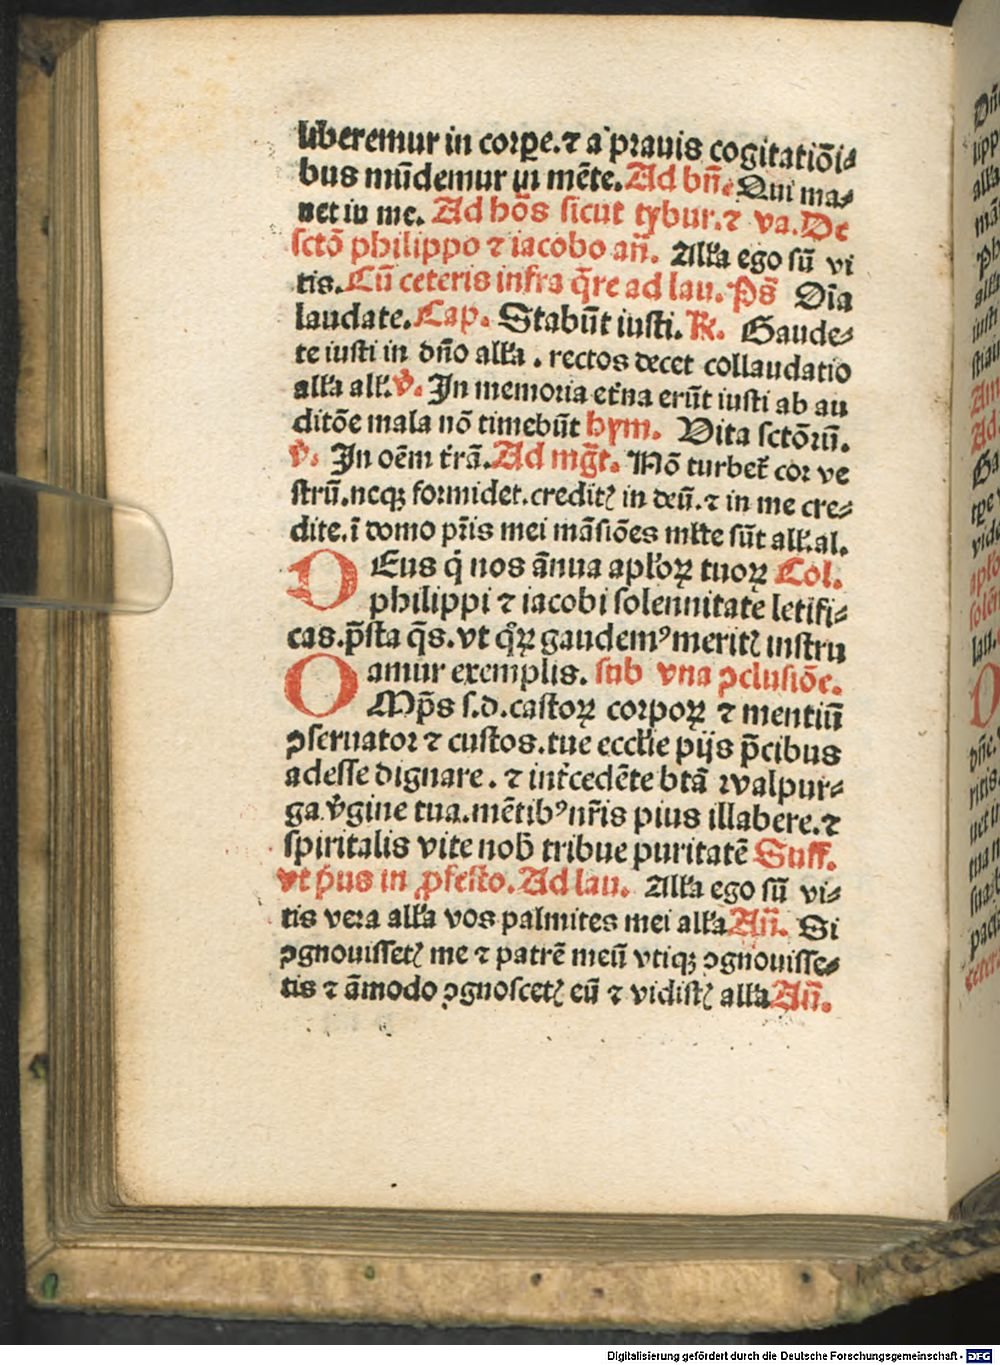 liberemur in corꝑe.⁊ a prauis cogitatiōi⸗
bus mūdemur in mēte. Ad bn̄. Qui ma⸗
net in me. Ad hōs sicut tybur.⁊ va. De
sctō philippo ⁊ iacobo an̄. Alla ego sū vi
tis. Cū ceteris infra q̄re ad lau. Ps̄ Dn̄a
laudate. Cap. Stabūt iusti. R̄. Gaude⸗
te iusti in dn̄o alla . rectos decet collaudatio
alla all. v̄. In memoria et̄na erūt iusti ab au
ditōe mala nō timebūt hym. Vita sctōrū.
v̄. In oēm t̄rā. Ad mḡt. Nō turbet̄ cor ve
strū.neqꝫ formidet.creditꝭ in deū.⁊ in me cre⸗
dite.ī domo pr̄is mei māsiōes mlte sūt all.al.
DEus q̇ nos ānua aplorꝝ tuorꝝ Col.
philippi ⁊ iacobi solennitate letifi⸗
cas.p̄sta qs̄.vt qꝝ gaudemꝰ meritꝭ instru
amur exemplis. sub vna ꝯclusiōe.
OMps̄ s.d.castorꝝ corporꝝ ⁊ mentiū
ꝯseruator ⁊ custos.tue ecclie pijs p̄cibus
adesse dignare. ⁊ int̄cedēte btā walpur⸗
ga v̄gine tua.mētibꝰ nr̄is pius illabere.⁊
spiritalis vite nob̄ tribue puritatē Suff.
vt pͥus in ꝓfesto. Ad lau. Alla ego sū vi⸗
tis vera alla vos palmites mei alla An̄. Si
ꝯgnouissetꝭ me ⁊ patrē meū vtiqꝫ ꝯgnouisse⸗
tis ⁊ āmodo ꝯgnoscetꝭ eū ⁊ vidistꝭ alla An̄.
Digitalisierung gefördert durch die Deutsche Forschungsgemeinschaft - DFG